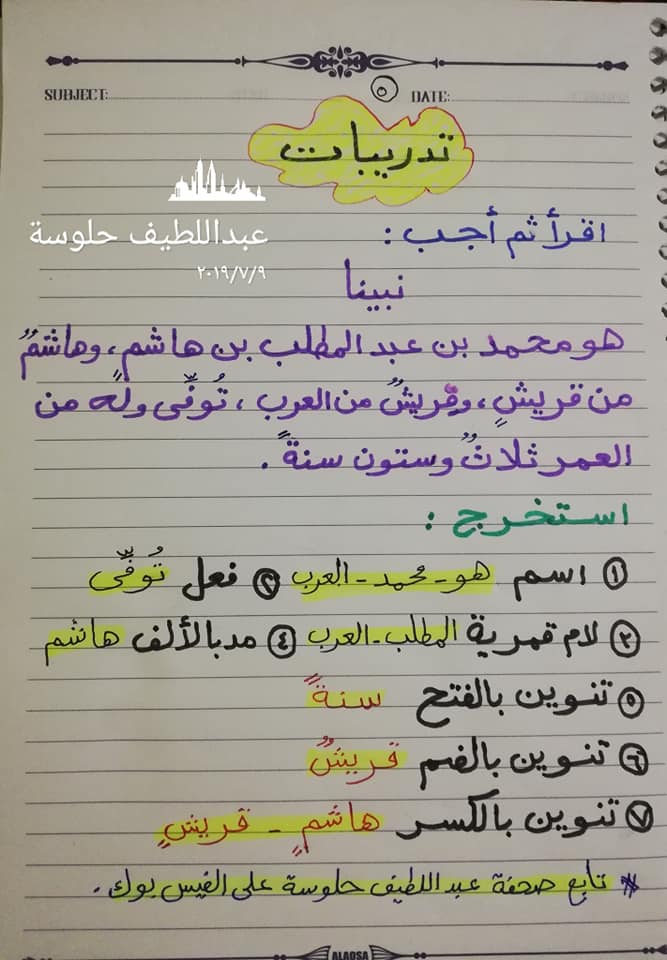 SUBJECT:
٥
DATE:
تدريبات
عبداللطيف حلوسة
٢٠١٩/٧/٩
اقرأ ثم أجب :
نبينا
هو محمد بن عبد المطلب بن هاشم ، وهاشمٌ
من قريشٍ ، وقريشٌ من العرب ، تُوفّى وله من
العمر ثلاثٌ وستون سنةً .
استخرج :
① اسم هو - محمد - العرب ② فعل تُوفّى
③ لام قمرية المطلب - العرب ④ مد بالألف هاشم
⑤ تنوين بالفتح سنةً
⑥ تنوين بالضم قريشٌ
⑦ تنوين بالكسر هاشمٍ - قريشٍ
* تابع صحفة عبد اللطيف حلوسة على الفيس بوك .
ALAQSA